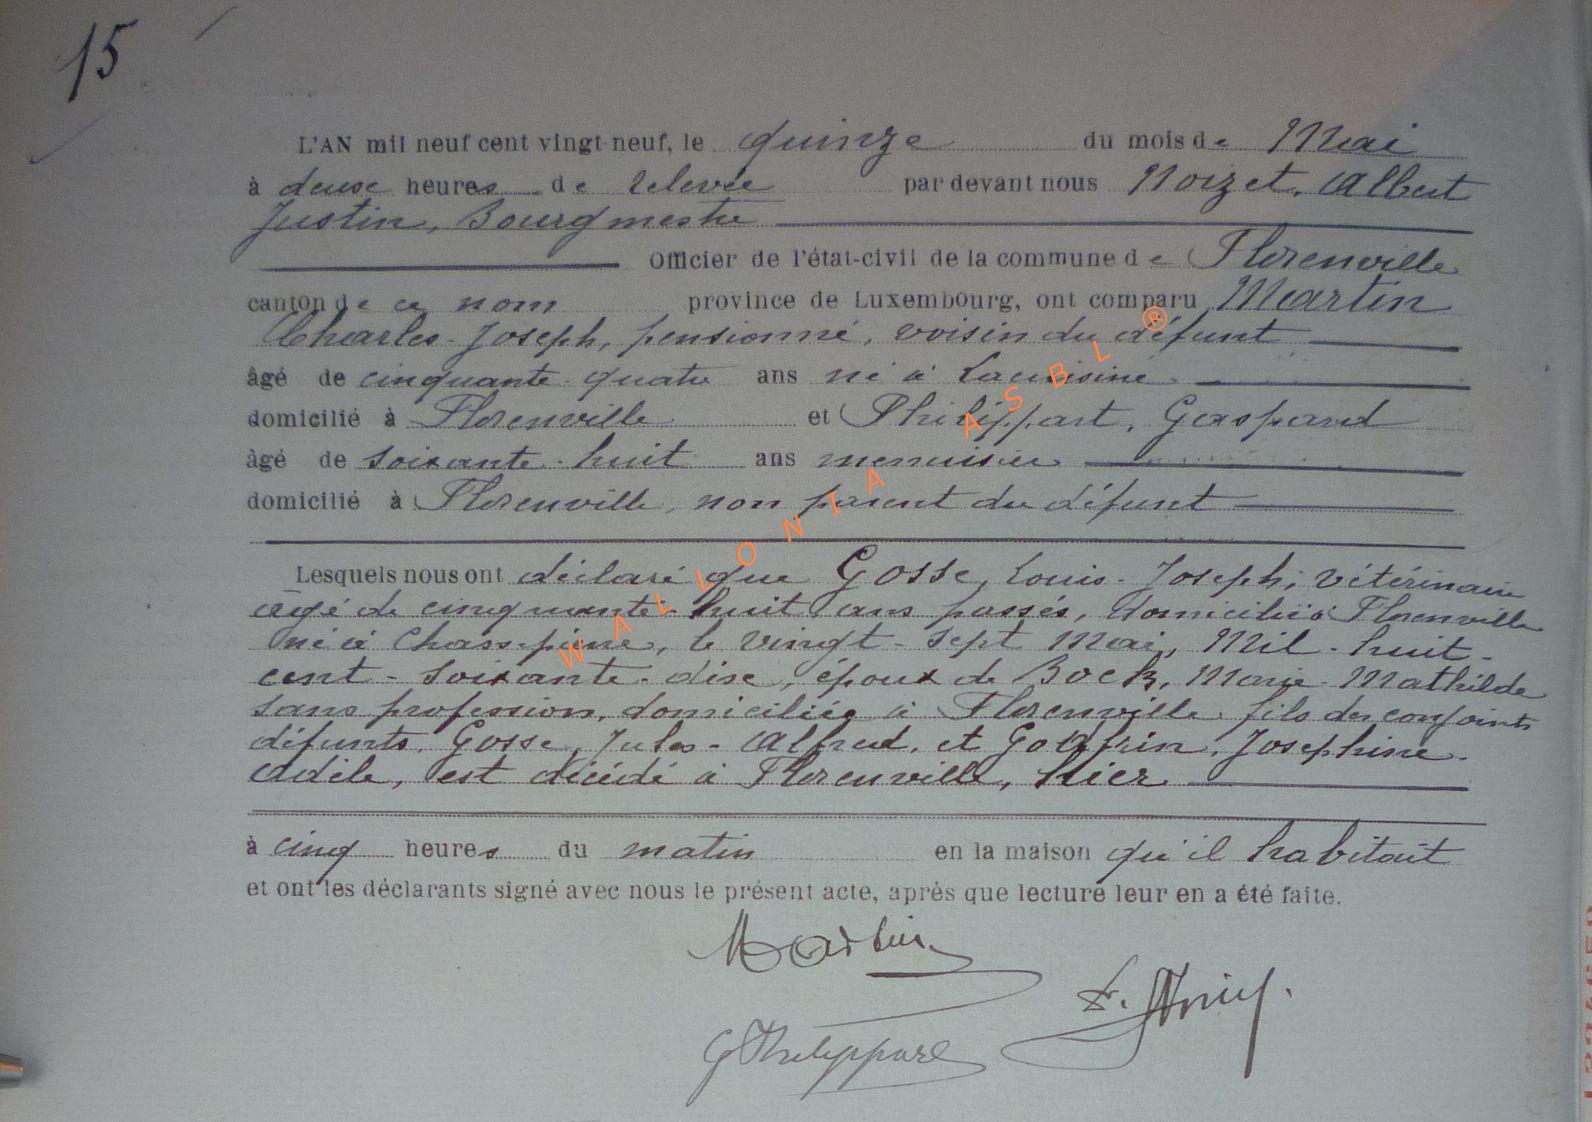 15
L'AN mil neuf cent vingt neuf, le quinze du mois de Mai
à deux heures de relevée par devant nous Noizet, Albert
Justin, Bourgmestre
Officier de l'état-civil de la commune de Florenville
canton de ce nom province de Luxembourg, ont comparu Martin
Charles-Joseph, pensionné, voisin du défunt
âgé de cinquante-quatre ans né à Lacuisine
domicilié à Florenville et Philippart, Gaspard
âgé de soixante-huit ans menuisier
domicilié à Florenville, non parent du défunt
Lesquels nous ont déclaré que Gosse, Louis-Joseph, vétérinaire
âgé de cinquante-huit ans passés, domicilié à Florenville
né à Chassepierre, le vingt-sept Mai, Mil-huit-
cent-soixante-dix, époux de Bock, Marie-Mathilde
sans profession, domiciliée à Florenville, fils des conjoints
défunts, Gosse, Jules-Alfred, et Goffrin, Josephine-
Adèle, est décédé à Florenville, hier
à cinq heures du matin en la maison qu'il habitait
et ont les déclarants signé avec nous le présent acte, après que lecture leur en a été faite.
Martin
G Philippart
WALLONIA ASBL ®